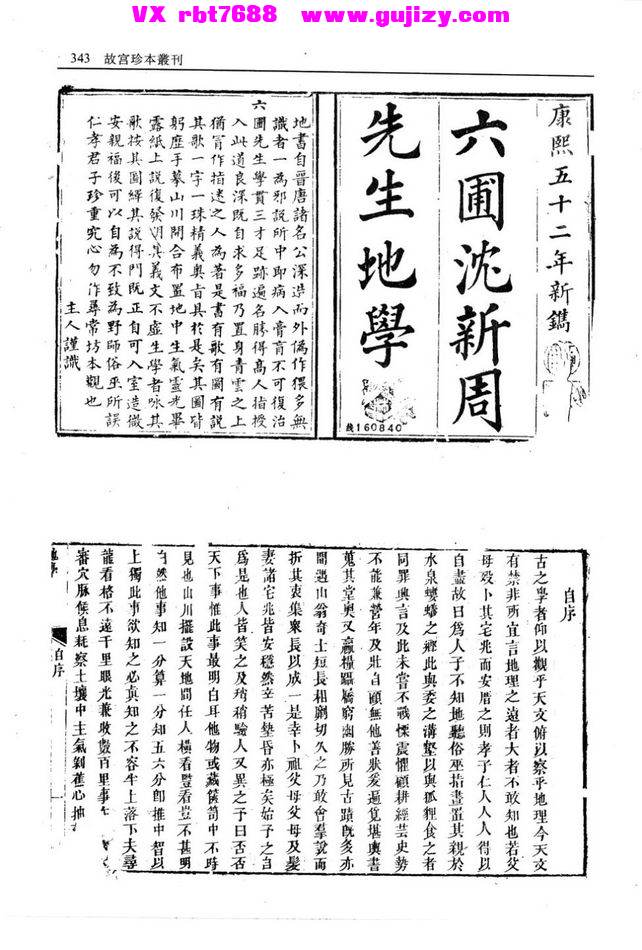 VX rbt7688   www.gujizy.com
343 故宫珍本叢刊
康熙五十二年新鐫
六圃沈新周
先生地學
线160840
地書自晉唐諸名公深造而外偽作猥多無
識者一為邪說所中即病入膏肓不可復治
六圃先生學貫三才足跡遍名勝得高人指授
入此道良深既自求多福乃置身青雲之上
猶冐作指迷之人為著是書有歌有圖有說
其歌一字一珠精義奧旨具於是矣其圖皆
躬歷手摹山川開合布置地中生氣靈光畢
露紙上說復發明其義文不虛生學者咏其
歌按其圖繹其說得門既正自可入室造微
安親福後可以自為不致為野師俗巫所誤
仁孝君子珍重究心勿作尋常坊本觀也
主人謹識
自序
古之學者仰以觀乎天文俯以察乎地理今天文
有禁非所宜言地理之遠者大者不敢知也若父
母歿卜其宅兆而安厝之則孝子仁人人人得以
自盡故曰為人子不知地聽俗巫指畫置其親於
水泉螻蟻之鄉此與委之溝壑以與狐狸食之者
同罪興言及此未嘗不戰慄震懼顧耕經芸史勢
不能兼營年及壯自顧無他善狀爰遍覓堪輿書
蒐其堂奧又贏糧躡屩窮幽勝所見古蹟旣多亦
間遇山翁奇士短長相劘切久之乃敢會羣說而
折其衷集衆長以成一是幸卜祖父母父母及髮
妻諸宅兆皆安穩然辛苦墊昏亦極矣始予之自
為是也人皆笑之及稍稍驗人又異之予曰否否
天下事惟此事最明白耳他物或藏篋笥中不時
見也山川擺設天地間任人橫看豎看豈不甚明
自然他事知一分算一分知五六分即推中智以
上獨此事欲知之必真知之不容半上落下夫尋
龍看格不遠千里眼光兼收數百里事
審穴脈候息耗察土壤中主氣剝蕉心抽
自序